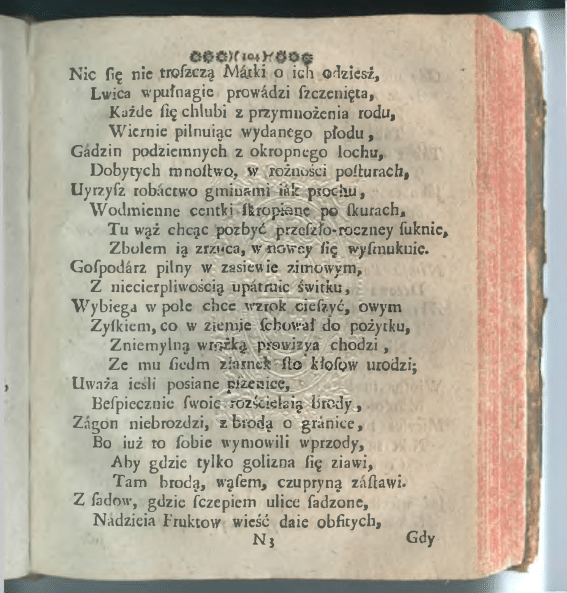 )( 104 )(
Nic ſię nie troſzczą Mátki o ich odzież,
Lwica wpułnagie prowádzi ſzczenięta,
Każde ſię chlubi z przymnożenia rodu,
Wiernie pilnuiąc wydanego płodu,
Gádzin podziemnych z okropnego lochu,
Dobytych mnoſtwo, w rożności poſturach,
Uyrzyſz robáctwo gminámi iák prochu,
Wodmienne centki ſkropione po ſkurach,
Tu wąż chcąc pozbyć przeſzło-roczney ſuknie,
Zbolem ią zrzuca, w nowey ſię wyſmuknie.
Goſpodárz pilny w zasiewie zimowym,
Z niecierpliwością upátruie świtku,
Wybiega w pole chce wzrok cieſzyć, owym
Zyſkiem, co w ziemię ſchował do pożytku,
Zniemylną wrożką prowizya chodzi,
Ze mu ſiedm ziarnek ſto kłoſow urodzi;
Uważa ieśli posiane pſzenice,
Beſpiecznie ſwoie rozścielaią brody,
Zágon niebrozdzi, z brodą o gránice,
Bo iuż to ſobie wymowili wprzody,
Aby gdzie tylko golizna ſię ziawi,
Tam brodą, wąſem, czupryną záſtawi.
Z ſadow, gdzie ſczepiem ulice ſadzone,
Nádzieia Fruktow wieść daie obfitych,
N3 Gdy